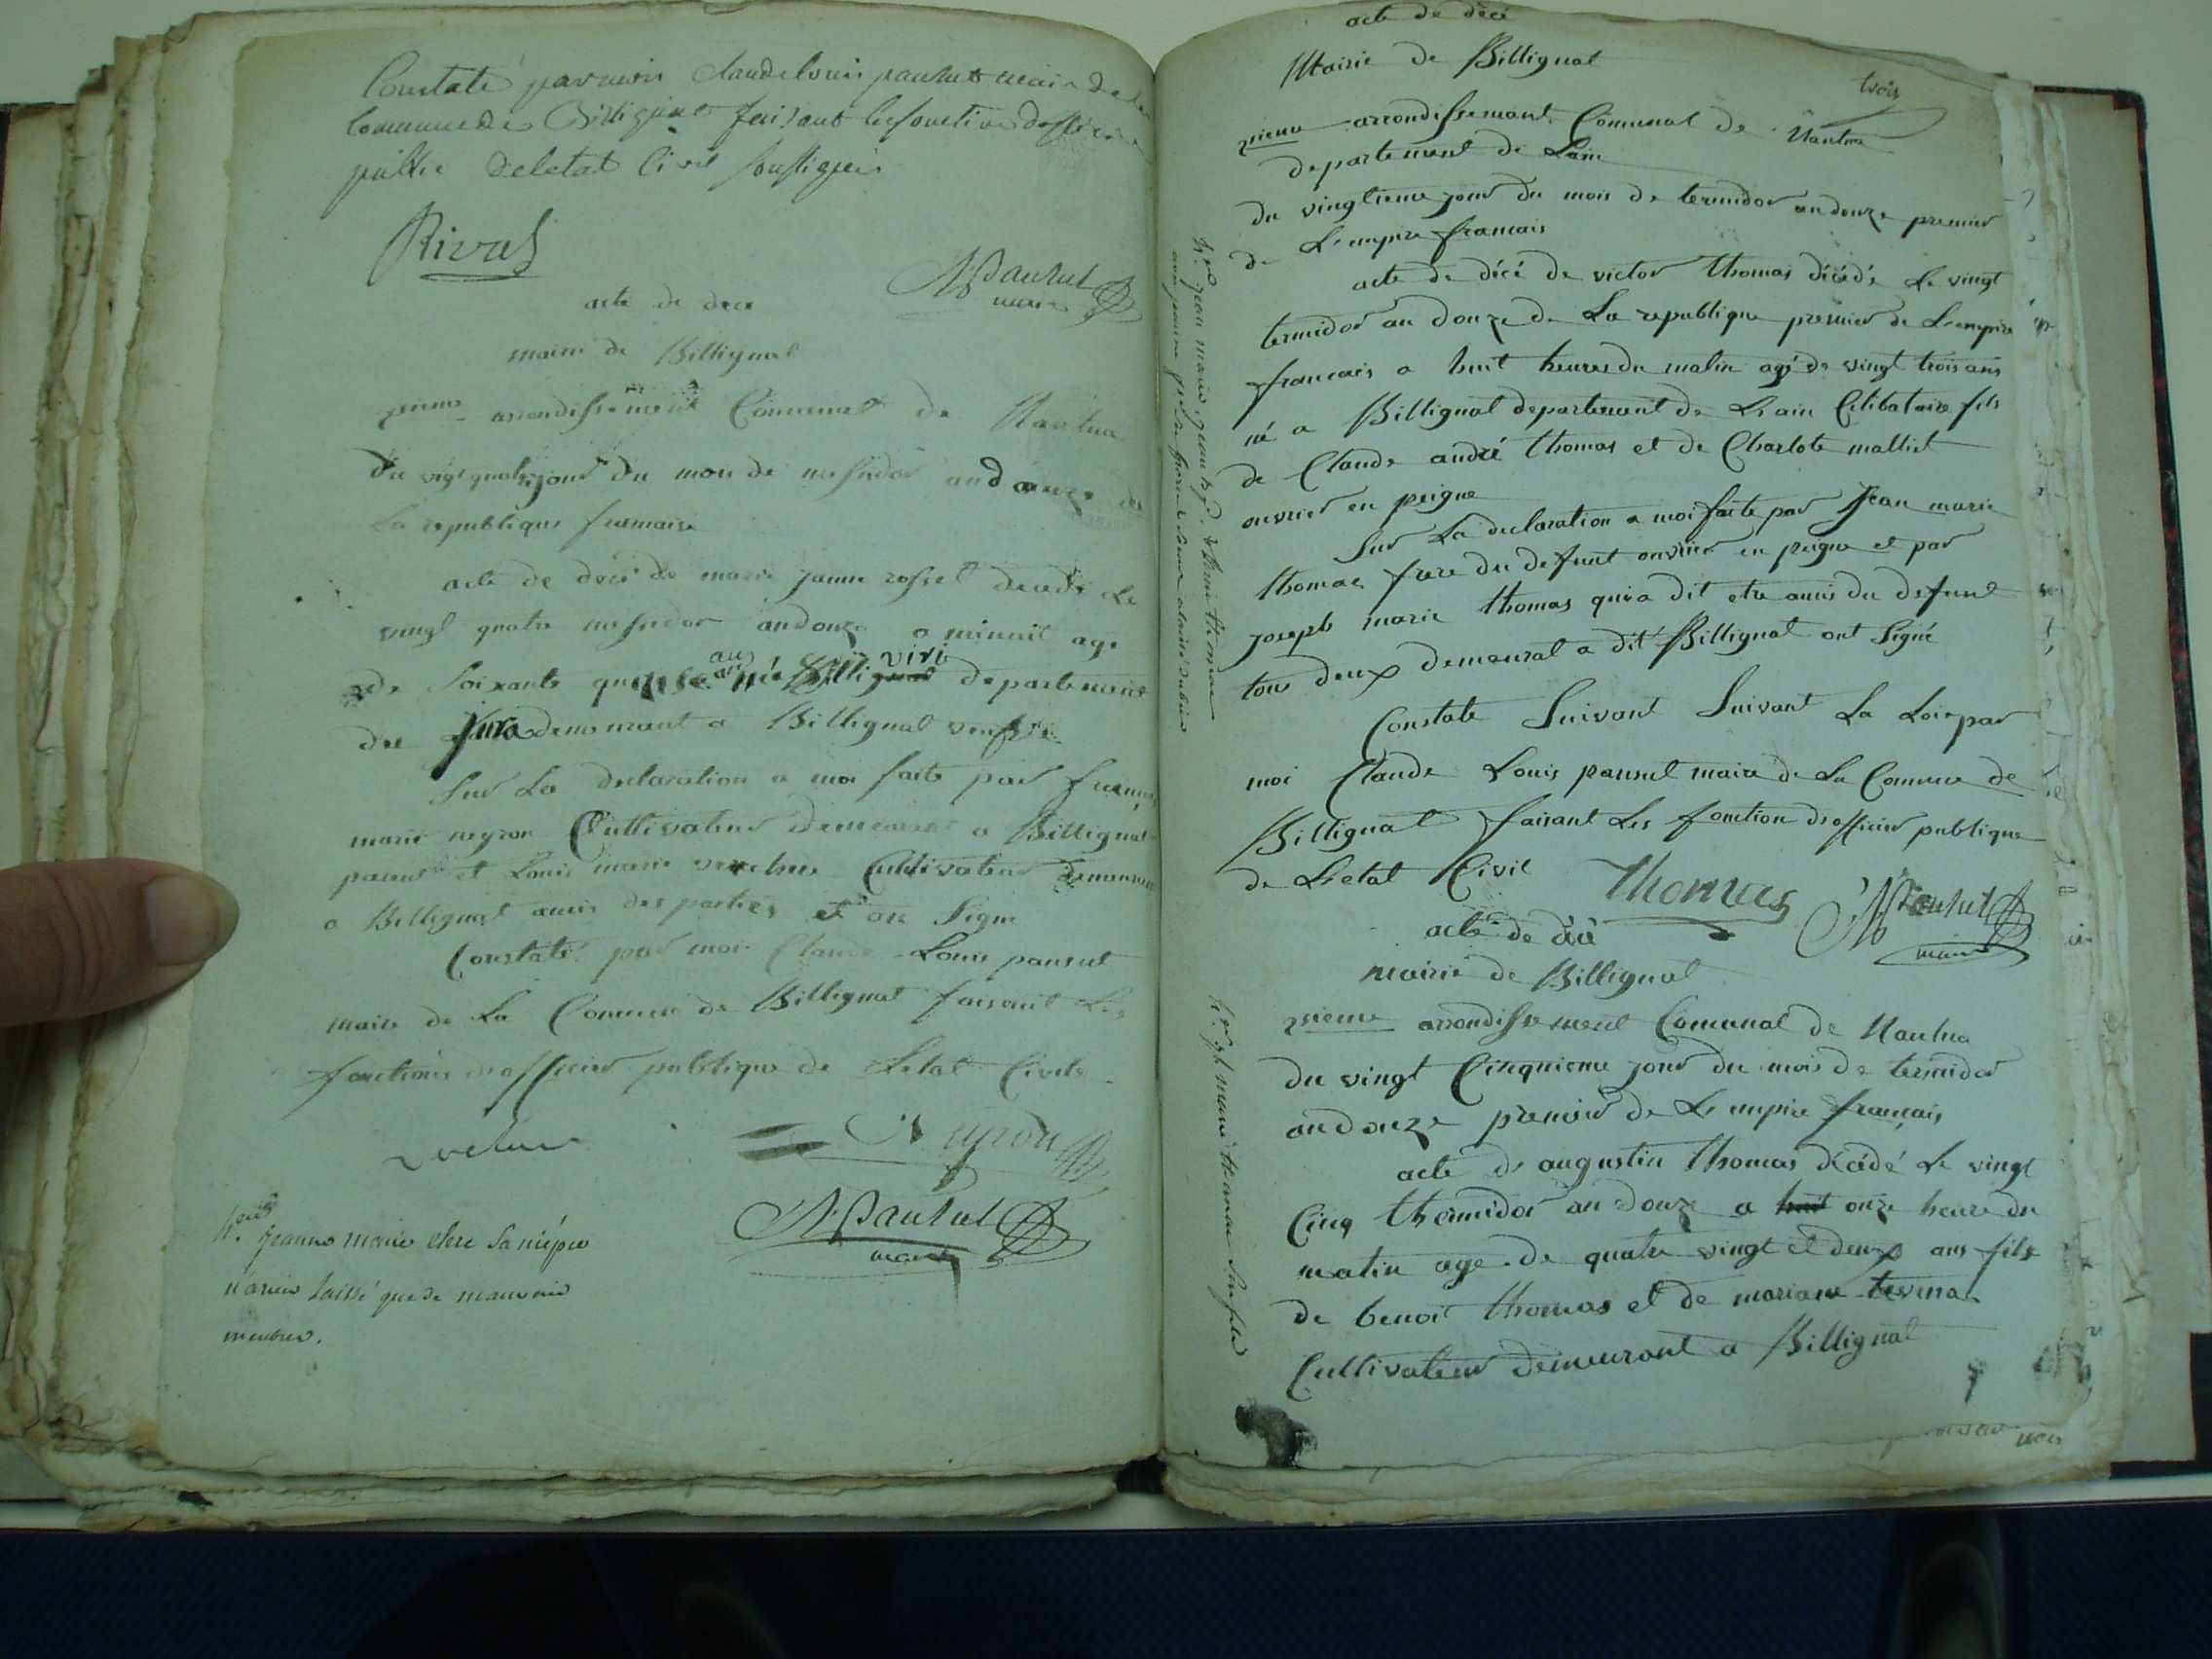 Constaté par moi Claude Louis pansut maire de la
commune de Billignat faisant les fonctions d'officier
public de letat Civil soussigné
Rival
Pansut
maire
acte de deces
mairie de Billignat
arrondissement Communal de Nantua
du vingt quatre jour du mois de mesidor an douze de
La republique francaise
acte de décé de marie janne rosset decede Le
vingt quatre mesidor an douze a minuit age
de soixante quinse ans né a viri departement
du jura demeurant a Billignat
Sur La declaration a moi faite par francois
marie neyron Cultivateur demeurant a Billignat
et Louis marie Cultivateur demeurant
a Billignat amis des parties et on Signe
Constaté par moi Claude Louis pansut
maire de La Comune de Billignat faisant Les
fonctions d'officier publique de Letat Civile
Neyron
Pansut
maire
jeanne marie clerc sa niépce
n'a rien laissé que de mauvais
meubles.
acte de décé
Mairie de Billignat
trois
zieme arrondissement Comunal de Nantua
departement de Lain
du vingtieme jour du mois de termidor an douze premier
de L'empire francais
acte de décé de victor thomas décédé Le vingt
termidor an douze de La republique premier de L'empire
francais a huit heures du matin agé de vingt trois ans
né a Billignat departement de L'ain Celibataire fils
de Claude andré thomas et de Charlote malliet
ouvrier en peigne
Sur La declaration a moi faite par Jean marie
thomas frere du defunt ouvrier en peigne et par
joseph marie thomas qui a dit etre amis du defunt
tous deux demeurat a dit Billignat ont Signé
Constate Suivant Suivant La Loi par
moi Claude Louis pansut maire de La Comune de
Billignat faisant Les fonction d'officier publique
de L'etat Civil
thomas
Pansut
maire
acte de décé
mairie de Billignat
zieme arrondissement Comunal de Nantua
du vingt Cinquieme jour du mois de termidor
an douze premier de L'empire francais
acte de augustin thomas décédé Le vingt
Cinq thermidor an douze a huit onze heure du
matin age de quatre vingt et deux ans fils
de benoit thomas et de mariane
Cultivateur demeurant a Billignat